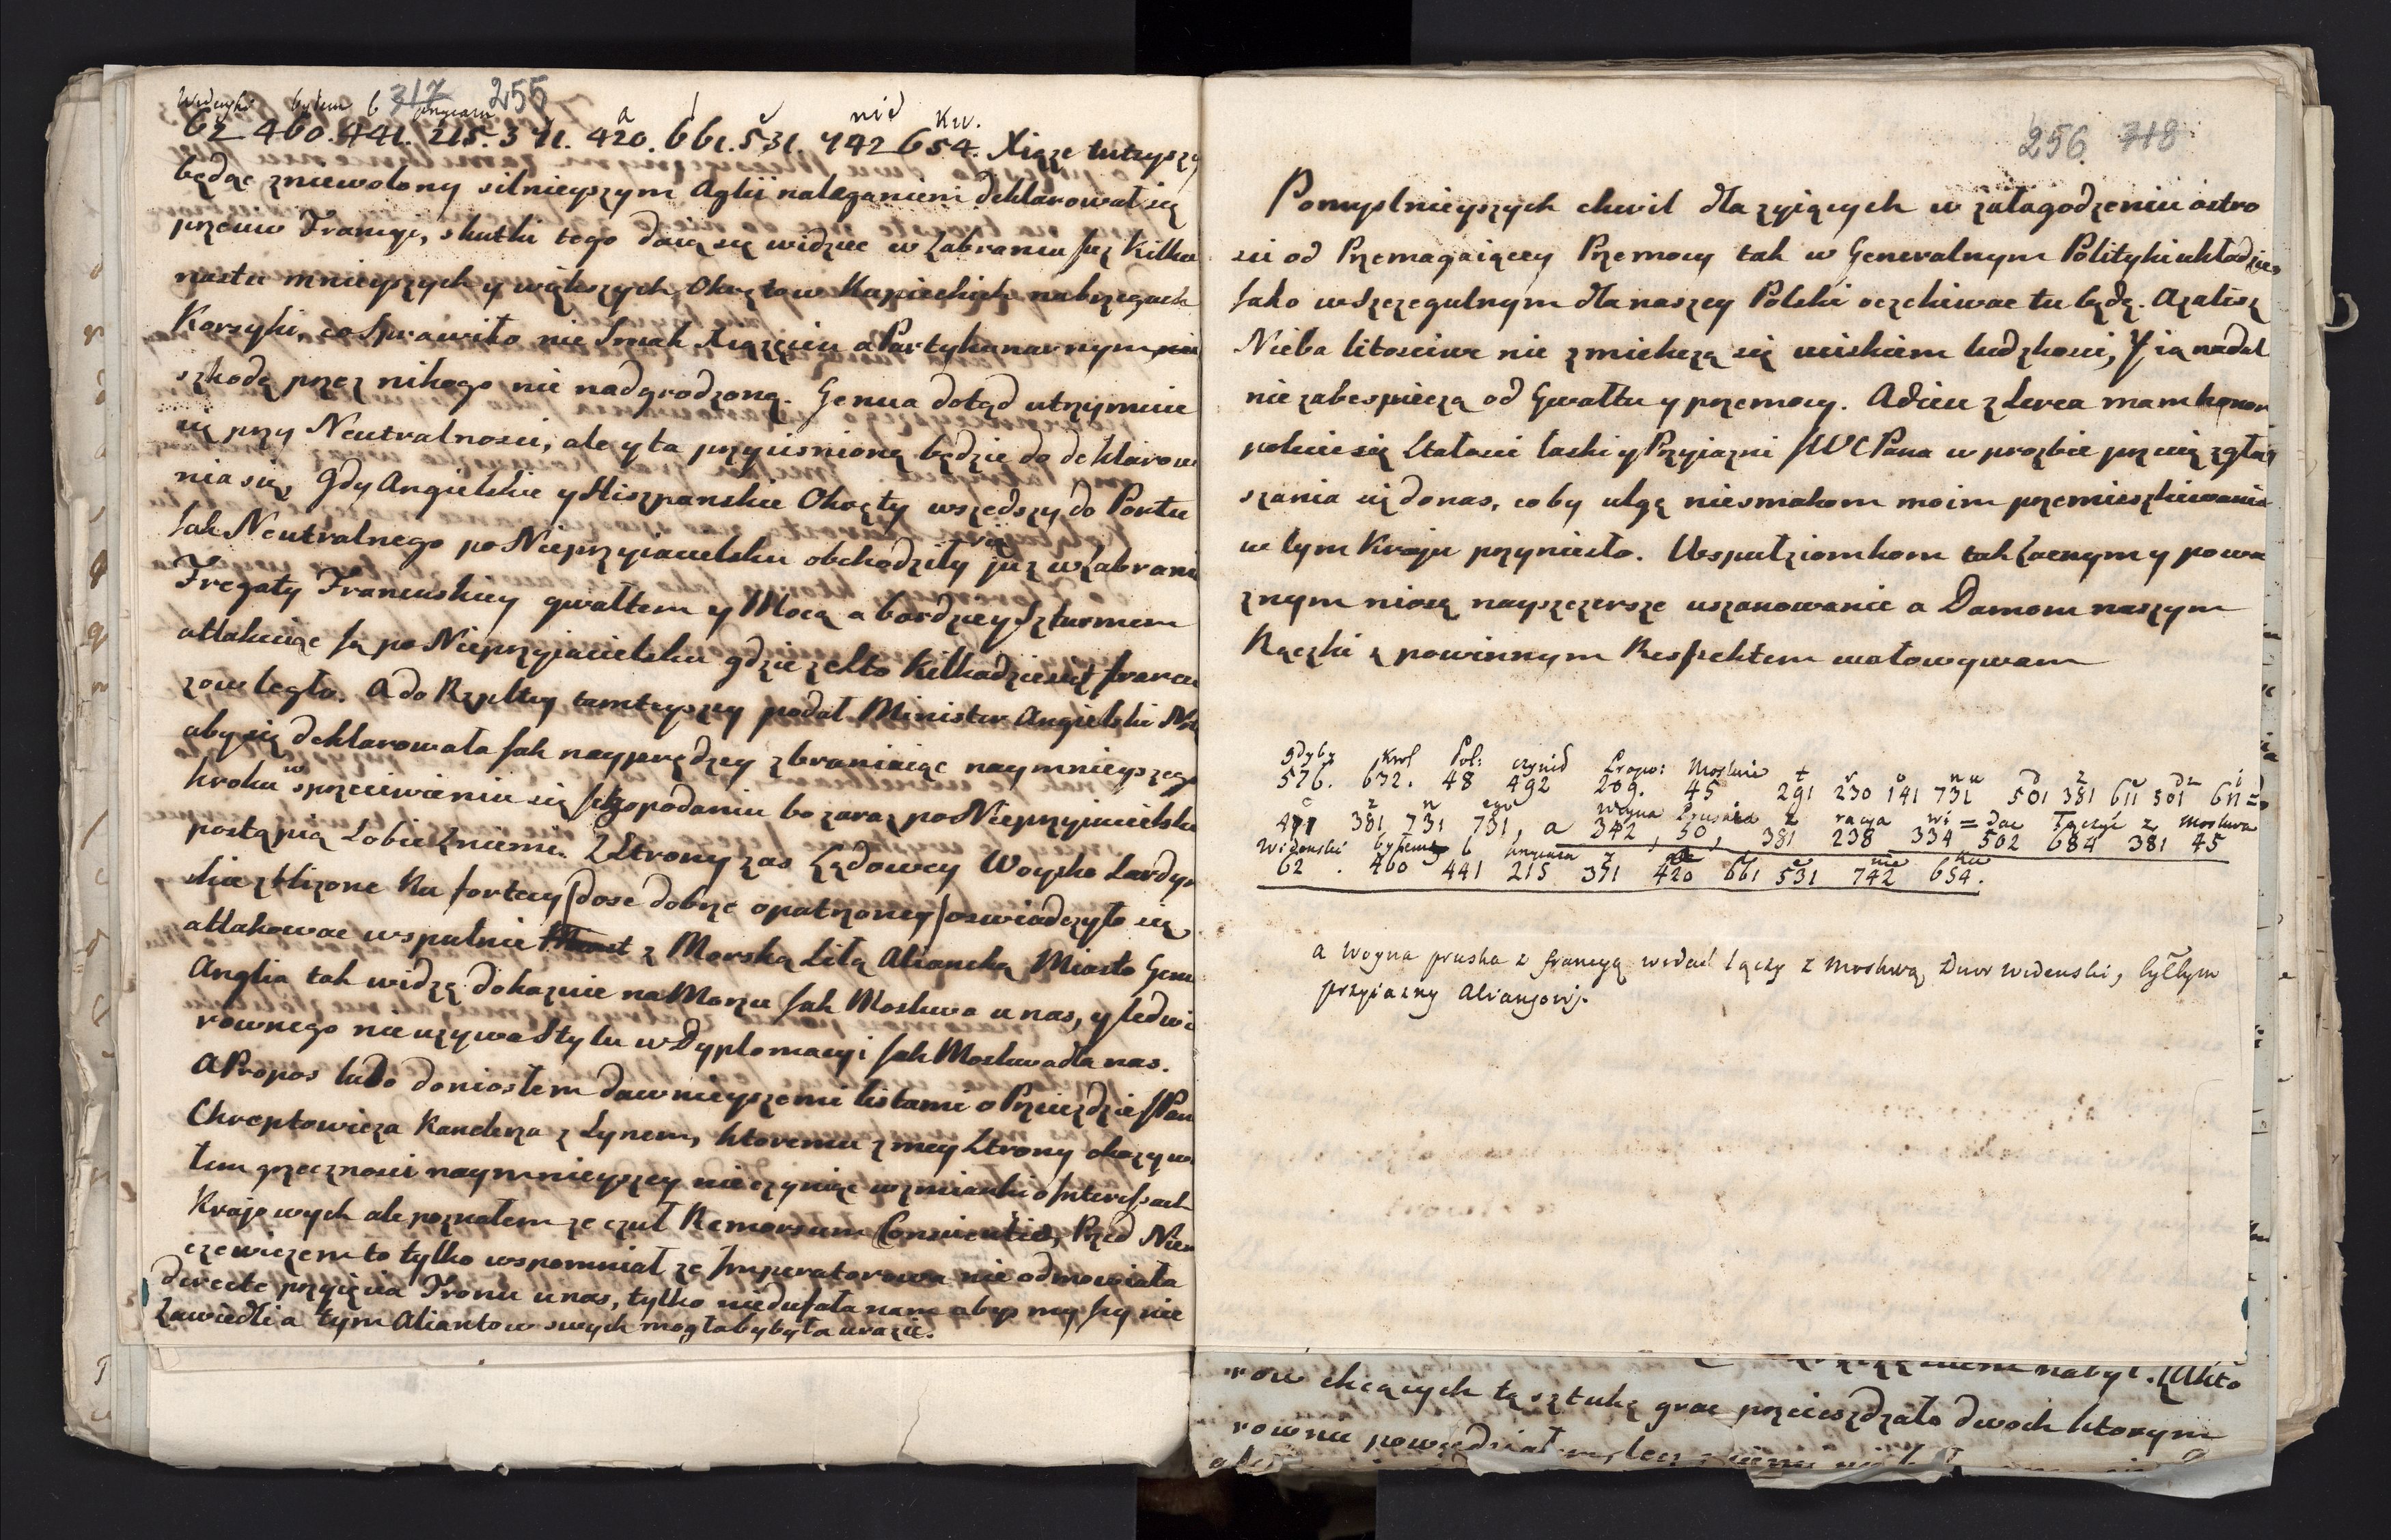 317 255
Widenski bytem b przyiazn a l c nie ku.
62 460. 441. 215. 371. 420. 661. 531. 742 654. Xiąze tutyszy
będąc zniewolony silnieyszym Aglii naleganiem deklarował się
przeciw Francyi, skutki tego daią się widziec w Zabraniu Juz Kilku
nastu mnieyszych y większych Okrętow Kupieckich na brzegach
Korsyki, co Sprawiło nie Smak Xiązęciu a Partykunarnym
szkodę przez nikogo nie nadgrodzoną. Genua dotąd utrzymuie
się przy Neutralnosci, ale y ta przycisnioną będzie do deklarowa
nia się, Gdy Angielskie y Hiszpanskie Okręty wszedszy do Portu
Jak Neutralnego po Nieprzyiacielsku obchodziły się juz w Zabraniu
Fregaty Francuskiey gwałtem y Mocą a bardziey Szturmem
attakuiąc Ją po Nieprzyjacielsku gdzie zesto Kilkadziesiąt francu
zow legło. A do Rzpltey tamteyszey podał Minister Angielski Notę
aby się deklarowała Jak nayprędzey zbraniaiąc naymnieyszego
kroku w sprzeciwieniu się Jego podaniu bo zaraz po Nieprzyjacielsku
postąpią Sobie Zniemi. Z Strony zas Lądowey Woysko Sardyn
skie zblizone Ku fortecy /dosc dobrze opatrzoney/ oswiadczyło się
attakowac wspulnie z Morską Siłą Aliancką Miasto Genu
Anglia tak widzę dokazuie na Morzu Jak Moskwa u nas, y Jedwi
rownego nie uzywa Stylu w Dyplomacyi Jak Moskwa dla nas.
A Propos lubo doniosłem dawnieyszemi listami o Przieździe JPana
Chreptowicza Kanclerza z Synem, ktoremu z mey Strony okazyw
łem grzecznosci naymnieyszey nie czyniąc wzmianki o Interessach
Krajowych ale poznałem ze czuł Remorsum Conscientiæ, Przed Niem
czewiczem to tylko wspomniał ze Imperatorowa nie odmowiała
directe przyięcia Tronu u nas, tylko nie dufała nam abysmy Jey nie
Zawiedli a tym Aliantow swych mogłaby była urazic.
256 318
Pomyslnieyszych chwil dla zyiących w załagodzeniu ostro
sci od Przemagaiącey Przemocy tak w Generalnym Polityki układzie
Jako w Szczegulnym dla naszey Polski oczekiwac tu będę. Azalisz
Nieba litosciwe nie zmiekczą się uciskiem ludzkosci, Y ią nadal
nie zabespieczą od Gwałtu y przemocy. Adieu z Serca mam honor
polecic się Stałosci łaski y Przyiazni JWWC Pana w prozbie przecię zgła
szania się do nas, co by ulgę niesmakom moim przemieszkiwania
w tym Kraju przyniesło. Wspułziomkom tak Zacnym y powa
znym niosę nayszczersze uszanowanie a Damom naszym
Rączki z powinnym Respektem ucałowywam
gdyby Krol Pol: czynił Propo: Moskwie t r o n u d z c dz i
576. 632. 48 492 209. 45 291 230 141 731 501 381 611 501 611 =
c z n ego Woyna Pruska z racya wi = dac Łączyć z Moskwa
411 381 731 731, a 342, 50, 381 238 334 502 684 381 45
Widenski bytemy b przyiazn nie ku
62 . 460 441 215 371 420 661 531 742 654.
a Woyna pruska z francyą widać Łączy z Moskwą Dwor widenski, byłbym
przyiazny Aliansowi.
row chcących tą sztukę grac przeieszdzało dwoch ktorym